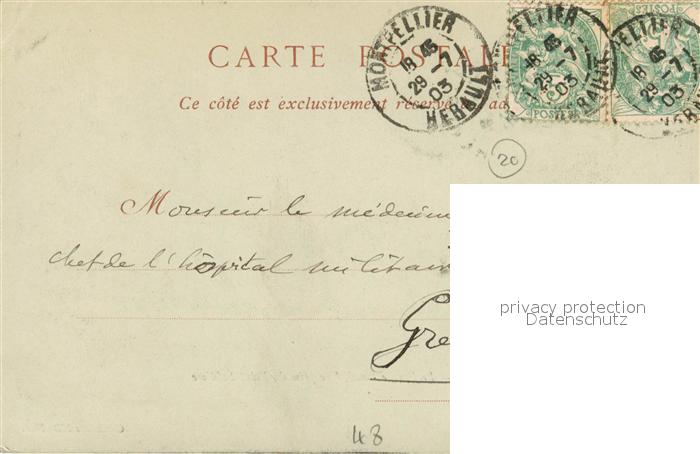 CARTE POSTALE
Ce côté est exclusivement réservé
MONTPELLIER
18 45
29 -7
03
HERAULT
PELLIER
18 45
29 -7
03
POSTES
PELLIER
18 45
29 -7
03
20
Monsieur le médecin
chef de l'hôpital militair
Gre
privacy protection
Datenschutz
48